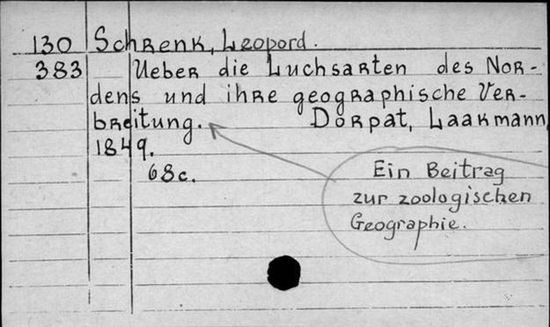 130 Schrenk, Leopord.
383 Ueber die Luchsarten des Nor-
dens und ihre geographische Ver-
breitung. Dorpat, Laakmann,
1849.
68c.
Ein Beitrag
zur zoologischen
Geographie.